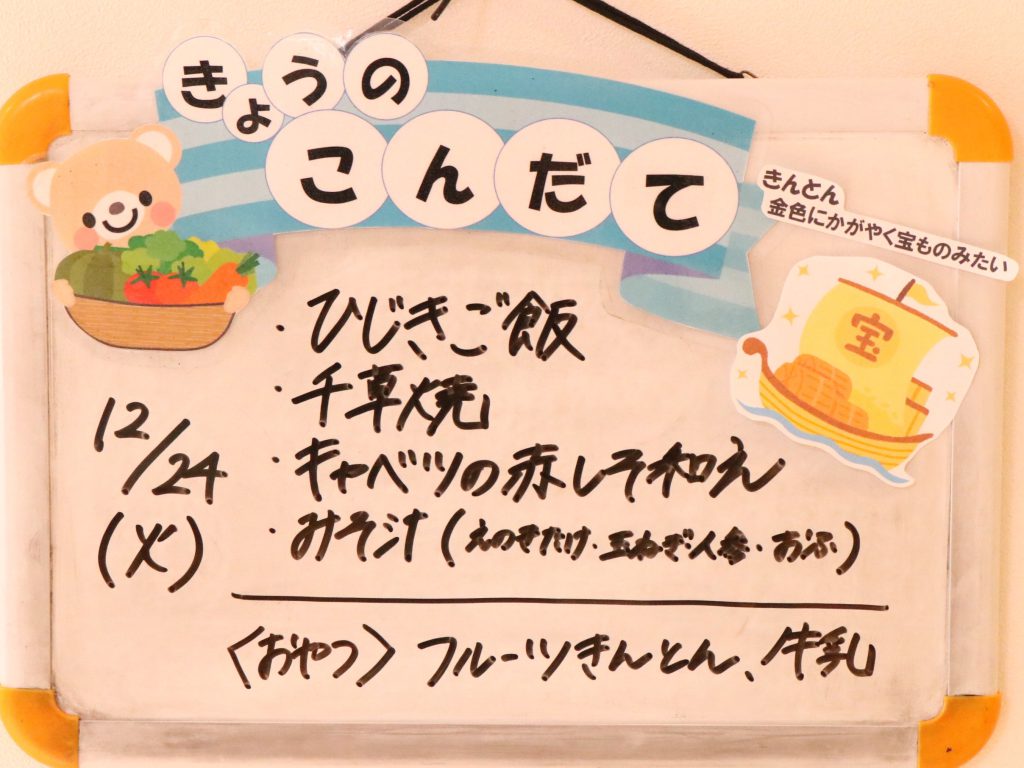 きょうの
こんだて
きんとん
金色にかがやく宝ものみたい
宝
12/24
(火)
・ひじきご飯
・千草焼
・キャベツの赤しそ和え
・みそ汁(えのきだけ・玉ねぎ・人参・おふ)
〈おやつ〉フルーツきんとん、牛乳